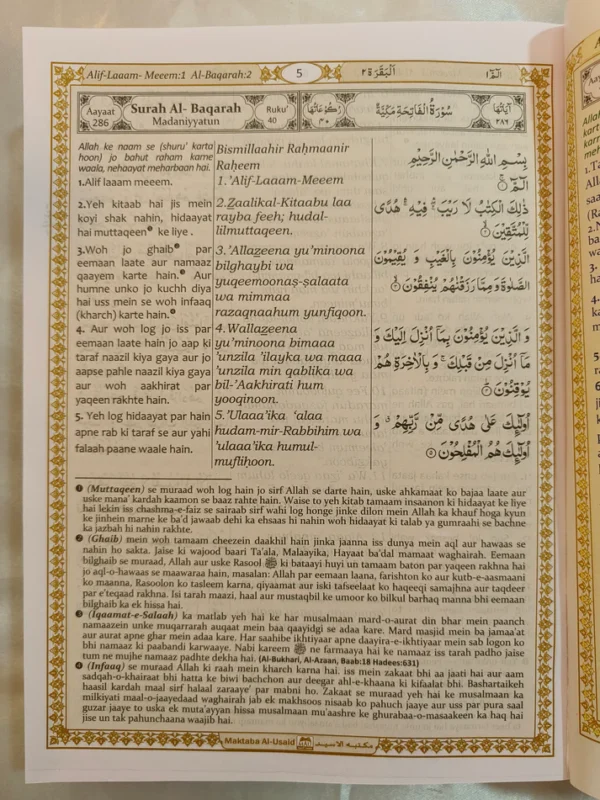 Alif-Laaam- Meeem:1 Al-Baqarah:2
5
اَلْبَقَرَة ٢
الٓمّٓ ١
Aayaat 286
Surah Al- Baqarah
Madaniyyatun
Ruku' 40
رُكُوْعَاتُهَا ٤٠
سُوْرَةُ الْفَاتِحَةِ مَكِّيَّةٌ
اٰيَاتُهَا ٢٨٦
Allah ke naam se (shuru' karta
hoon) jo bahut raham karne
waala, nehaayat meharbaan hai.
1.Alif laaam meeem.
2.Yeh kitaab hai jis mein
koyi shak nahin, hidaayat
hai muttaqeen❶ ke liye .
3.Woh jo ghaib❷ par
eemaan laate aur namaaz
qaayem karte hain.❸ Aur
humne unko jo kuchh diya
hai uss mein se woh infaaq
(kharch) karte hain.❹
4. Aur woh log jo iss par
eemaan laate hain jo aap ki
taraf naazil kiya gaya aur jo
aapse pahle naazil kiya gaya
aur woh aakhirat par
yaqeen rakhte hain.
5. Yeh log hidaayat par hain
apne rab ki taraf se aur yahi
falaah paane waale hain.
Bismillaahir Raḥmaanir
Raḥeem
1.'Alif-Laaam-Meeem
2.Ẓaalikal-Kitaabu laa
rayba feeh; hudal-
lilmuttaqeen.
3.'Allaẓeena yu'minoona
bilghaybi wa
yuqeemoonaṣ-ṣalaata
wa mimmaa
razaqnaahum yunfiqoon.
4.Wallaẓeena
yu'minoona bimaaa
'unzila 'ilayka wa maaa
'unzila min qablika wa
bil-'Aakhirati hum
yooqinoon.
5.'Ulaaa'ika 'alaa
hudam-mir-Rabbihim wa
'ulaaa'ika humul-
mufliḥoon.
بِسْمِ اللهِ الرَّحْمٰنِ الرَّحِيْمِ
الٓمّٓ ۝١
ذٰلِكَ الْكِتٰبُ لَا رَيْبَ ۛ فِيْهِ ۛ هُدًى
لِّلْمُتَّقِيْنَ ۝٢
الَّذِيْنَ يُؤْمِنُوْنَ بِالْغَيْبِ وَ يُقِيْمُوْنَ
الصَّلٰوةَ وَ مِمَّا رَزَقْنٰهُمْ يُنْفِقُوْنَ ۝٣
وَ الَّذِيْنَ يُؤْمِنُوْنَ بِمَآ اُنْزِلَ اِلَيْكَ وَ
مَآ اُنْزِلَ مِنْ قَبْلِكَ ۚ وَ بِالْاٰخِرَةِ هُمْ
يُوْقِنُوْنَ ۝٤
اُولٰٓئِكَ عَلٰى هُدًى مِّنْ رَّبِّهِمْ ۗ وَ
اُولٰٓئِكَ هُمُ الْمُفْلِحُوْنَ ۝٥
❶ (Muttaqeen) se muraad woh log hain jo sirf Allah se darte hain, uske ahkamaat ko bajaa laate aur
uske mana' kardah kaamon se baaz rahte hain. Waise to yeh kitab tamaam insaanon ki hidaayat ke liye
hai lekin iss chashma-e-faiz se sairaab sirf wahi log honge jinke dilon mein Allah ka khauf hoga kyun
ke jinhein marne ke ba'd jawaab dehi ka ehsaas hi nahin woh hidaayat ki talab ya gumraahi se bachne
ka jazbah hi nahin rakhte.
❷ (Ghaib) mein woh tamaam cheezein daakhil hain jinka jaanna iss dunya mein aql aur hawaas se
nahin ho sakta. Jaise ki wajood baari Ta'ala, Malaayika, Hayaat ba'dal mamaat waghairah. Eemaan
bilghaib se muraad, Allah aur uske Rasool ﷺ ki bataayi huyi un tamaam baton par yaqeen rakhna hai
jo aql-o-hawaas se maawaraa hain, masalan: Allah par eemaan laana, farishton ko aur kutb-e-aasmaani
ko maanna, Rasoolon ko tasleem karna, qiyaamat aur iski tafseelaat ko haqeeqi samajhna aur taqdeer
par e'teqaad rakhna. Isi tarah maazi, haal aur mustaqbil ke umoor ko bilkul barhaq manna bhi eemaan
bilghaib ka ek hissa hai.
❸ (Iqaamat-e-Salaah) ka matlab yeh hai ke har musalmaan mard-o-aurat din bhar mein paanch
namaazein unke muqarrarah auqaat mein baa qaayidgi se adaa kare. Mard masjid mein ba jamaa'at
aur aurat apne ghar mein adaa kare. Har saahibe ikhtiyaar apne daayira-e-ikhtiyaar mein sab logon ko
bhi namaaz ki paabandi karwaaye. Nabi kareem ﷺ ne farmaaya hai ke namaaz iss tarah padho jaise
tum ne mujhe namaaz padhte dekha hai. (Al-Bukhari, Al-Azaan, Baab:18 Hadees:631)
❹ (Infaaq) se muraad Allah ki raah mein kharch karna hai. iss mein zakaat bhi aa jaati hai aur aam
sadqah-o-khairaat bhi hatta ke biwi bachchon aur deegar ahl-e-khaana ki kifaalat bhi. Bashartaikeh
haasil kardah maal sirf halaal zaraaye' par mabni ho. Zakaat se muraad yeh hai ke musalmaan ka
milkiyati maal-o-jaayedaad waghairah jab ek makhsoos nisaab ko pahuch jaaye aur uss par pura saal
guzar jaaye to uska ek muta'ayyan hissa musalmaan mu'aashre ke ghurabaa-o-masaakeen ka haq hai
jise un tak pahunchaana waajib hai.
Maktaba Al-Usaid
مكتبه الاسيد